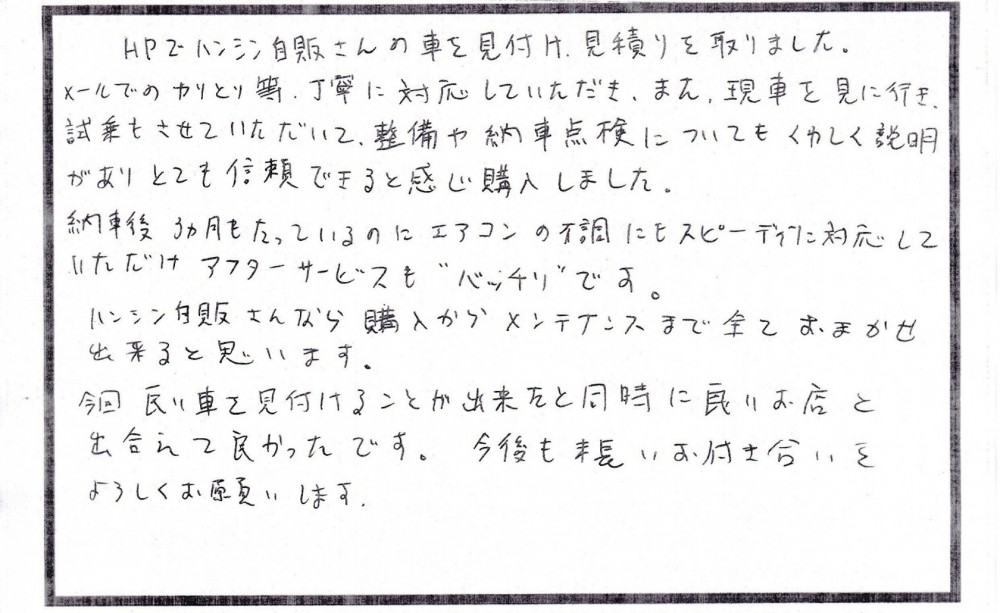 HPでハンシン自販さんの車を見付け、見積りを取りました。
メールでのやりとり等、丁寧に対応していただき、また、現車を見に行き、
試乗もさせていただいて、整備や納車点検についてもくわしく説明
がありとても信頼できると感じ購入しました。
納車後3カ月もたっているのにエアコンの不調にもスピーディに対応して
いただけアフターサービスも"バッチリ"です。
ハンシン自販さんなら購入からメンテナンスまで全ておまかせ
出来ると思います。
今回良い車を見付けることが出来たと同時に良いお店と
出合えて良かったです。今後も長いお付き合いを
よろしくお願いします。